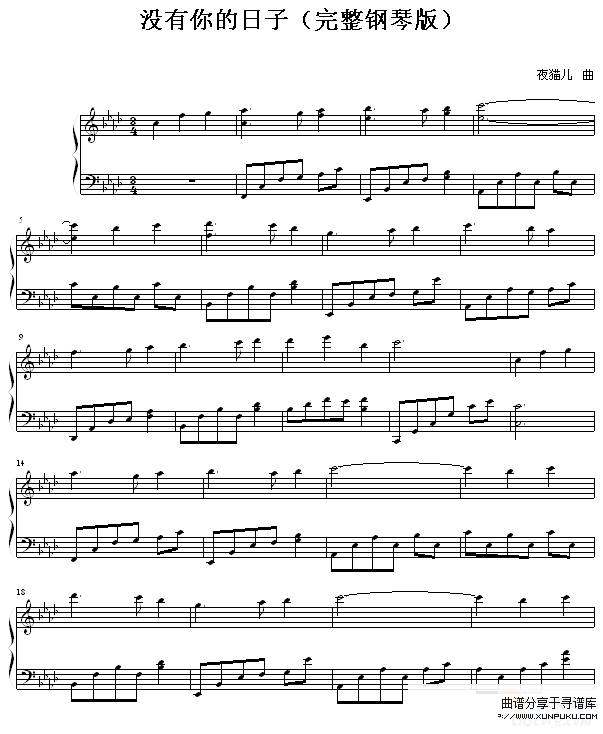 没有你的日子（完整钢琴版）
夜猫儿 曲
3
4
3
4
5
9
14
18
曲谱分享于寻谱库
HTTP://WWW.XUNPUKU.COM